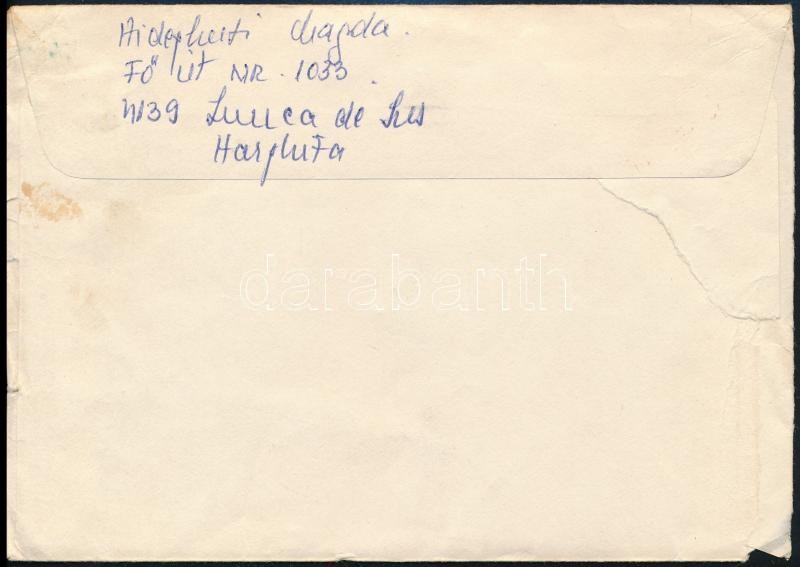 Magda.
Fő út NR. 1033.
4139 Lunca de Sus
Harghita
darabanth